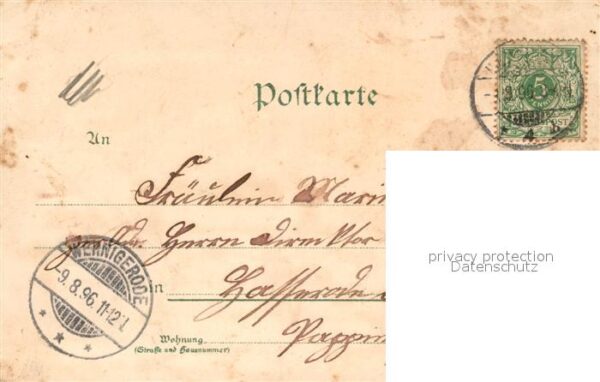 Postkarte
5
An
Fräulein Marie
Herrn Direktor
in Hasserode
Wohnung
(Straße und Hausnummer)
WERNIGERODE
9.8.96.11-12V.
privacy protection
Datenschutz